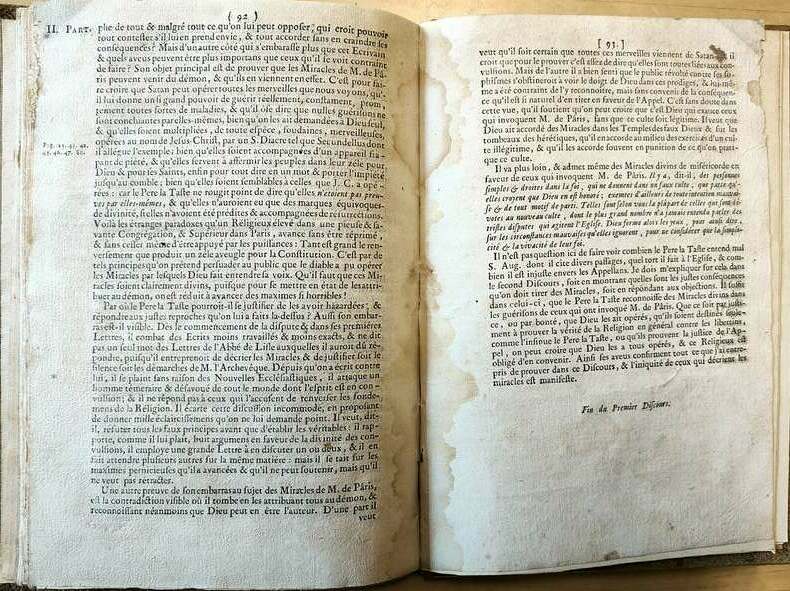 ( 92 )
II. PART. phe de tout & malgré tout ce qu'on lui peut opposer, qui croit pouvoir
tout contester s'il lui en prend envie, & tout accorder sans en craindre les
conséquences? Mais d'un autre côté qui s'embarasse plus que cet Ecrivain
& quels aveus peuvent être plus importans que ceux qu'il se voit contraint
de faire? Son objet principal est de prouver que les Miracles de M. de Pâ-
ris peuvent venir du démon, & qu'ils en viennent en effet. C'est pour fai-
re croire que Satan peut opérer toutes les merveilles que nous voyons, qu'il
lui donne un si grand pouvoir de guérir réellement, constament, prom-
tement toutes sortes de maladies, & qu'il ôse dire que nulles guérisons ne
sont concluantes par elles-mêmes, bien qu'on les ait demandées à Dieu seul,
& qu'elles soient multipliées, de toute espéce, soudaines, merveilleuses,
opérées au nom de Jesus-Christ, par un S. Diacre tel que Secundellus dont
il allégue l'exemple; bien qu'elles soient accompagnées d'un appareil frapa-
nt de piété, & qu'elles servent à affermir les peuples dans leur zéle pour
Dieu & pour les Saints, enfin pour tout dire en un mot & porter l'impiété
jusqu'au comble; bien qu'elles soient semblables à celles que J. C. a opé-
rées: car le Pere la Taste ne rougit point de dire qu'elles n'étoient pas preu-
ves par elles-mêmes, & qu'elles n'auroient eu que des marques équivoques
de divinité, si elles n'avoient été prédites & accompagnées de résurrections.
Voilà les étranges paradoxes qu'un Réligieux élevé dans une pieuse & sa-
vante Congrégation, & Supérieur dans Paris, avance sans être réprimé,
& sans cesser même d'être appuyé par les puissances: Tant est grand le ren-
versement que produit un zéle aveugle pour la Constitution. C'est par de
tels principes qu'on prétend persuader au public que le diable a pu opérer
les Miracles par lesquels Dieu fait entendre sa voix. Qu'il faut que ces Mi-
racles soient clairement divins, puisque pour se mettre en état de les attri-
buer au démon, on est réduit à avancer des maximes si horribles!
Par où le Pere la Taste pourroit-il se justifier de les avoir hazardées; &
répondre aux justes reproches qu'on lui a faits la-dessus? Aussi son embar-
ras est-il visible. Dès le commencement de la dispute & dans ses premières
Lettres, il combat des Ecrits moins travaillés & moins exacts, & ne dit
pas un seul mot des Lettres de l'Abbé de Lisle auxquelles il auroit dû ré-
pondre, puisqu'il entreprenoit de décrier les Miracles & de justifier soit le
silence soit les démarches de M. l'Archevêque. Depuis qu'on a écrit contre
lui, il se plaint sans raison des Nouvelles Ecclésiastiques, il attaque un
homme téméraire & désavoué de tout le monde dont l'esprit est en con-
vulsion; & il ne répond pas à ceux qui l'accusent de renverser les fonde-
mens de la Réligion. Il écarte cette discussion incommode, en proposant
de donner mille éclaircissemens qu'on ne lui demande point. Il veut, dit-
il, réfuter tous les faux principes avant que d'établir les véritables: il rap-
porte, comme il lui plaît, huit argumens en faveur de la divinité des con-
vulsions, il employe une grande Lettre à en discuter un ou deux, & il en
fait attendre plusieurs autres sur la même matière: mais il se tait sur les
maximes pernicieuses qu'il a avancées & qu'il ne peut soutenir, mais qu'il
ne veut pas rétracter.
Une autre preuve de son embarras au sujet des Miracles de M. de Pâris,
est la contradiction visible où il tombe en les attribuant tous au démon, &
reconnoissant néanmoins que Dieu peut en être l'auteur. D'une part il
veut
[ 93. ]
veut qu'il soit certain que toutes ces merveilles viennent de Satan & il
croit que pour le prouver c'est assez de dire qu'elles sont toutes liées aux con-
vulsions. Mais de l'autre il a bien senti que le public révolté contre ses so-
phismes s'obstineroit à voir le doigt de Dieu dans ces prodiges, & lui-mê-
me a été contraint de l'y reconnoitre, mais sans convenir de la conséquen-
ce qu'il est si naturel d'en tirer en faveur de l'Appel. C'est sans doute dans
cette vue, qu'il soutient qu'on peut croire que c'est Dieu qui exauce ceux
qui invoquent M. de Pâris, sans que ce culte soit légitime. Il veut que
Dieu ait accordé des Miracles dans les Temples des faux Dieux & sur les
tombeaux des hérétiques, qu'il en accorde au milieu des exercices d'un cul-
te illégitime, & qu'il les accorde souvent en punition de ce qu'on prati-
que ce culte.
Il va plus loin, & admet même des Miracles divins de miséricorde en
faveur de ceux qui invoquent M. de Pâris. Il y a, dit-il, des personnes
simples & droites dans la foi, qui ne donnent dans un faux culte, que parce qu'-
elles croyent que Dieu en est honoré; exemtes d'ailleurs de toute intention mauvai-
se & de tout motif de parti. Telles sont selon vous la plupart de celles qui sont dé-
votes au nouveau culte, dont le plus grand nombre n'a jamais entendu parler des
tristes disputes qui agitent l'Eglise. Dieu ferme alors les yeux, pour ainsi dire,
sur les circonstances mauvaises qu'elles ignorent, pour ne considérer que la simpli-
cité & la vivacité de leur foi.
Il n'est pas question ici de faire voir combien le Pere la Taste entend mal
S. Aug. dont il cite divers passages, quel tort il fait à l'Eglise, & com-
bien il est injuste envers les Appellans. Je dois m'expliquer sur cela dans
le second Discours, soit en montrant quelles sont les justes conséquences
qu'on doit tirer des Miracles, soit en répondant aux objections. Il suffit
dans celui-ci, que le Pere la Taste reconnoisse des Miracles divins dans
les guérisons de ceux qui ont invoqué M. de Pâris. Que ce soit par justi-
ce, ou par bonté, que Dieu les ait opérés, qu'ils soient destinés seule-
ment à prouver la vérité de la Religion en général contre les libertins,
comme l'insinue le Pere la Taste, ou qu'ils prouvent la justice de l'Ap-
pel, on peut croire que Dieu les a tous opérés, & ce Religieux est
obligé d'en convenir. Ainsi ses aveus confirment tout ce que j'ai entre-
pris de prouver dans ce Discours, & l'iniquité de ceux qui décrient les
miracles est manifeste.
Fin du Premier Discours.